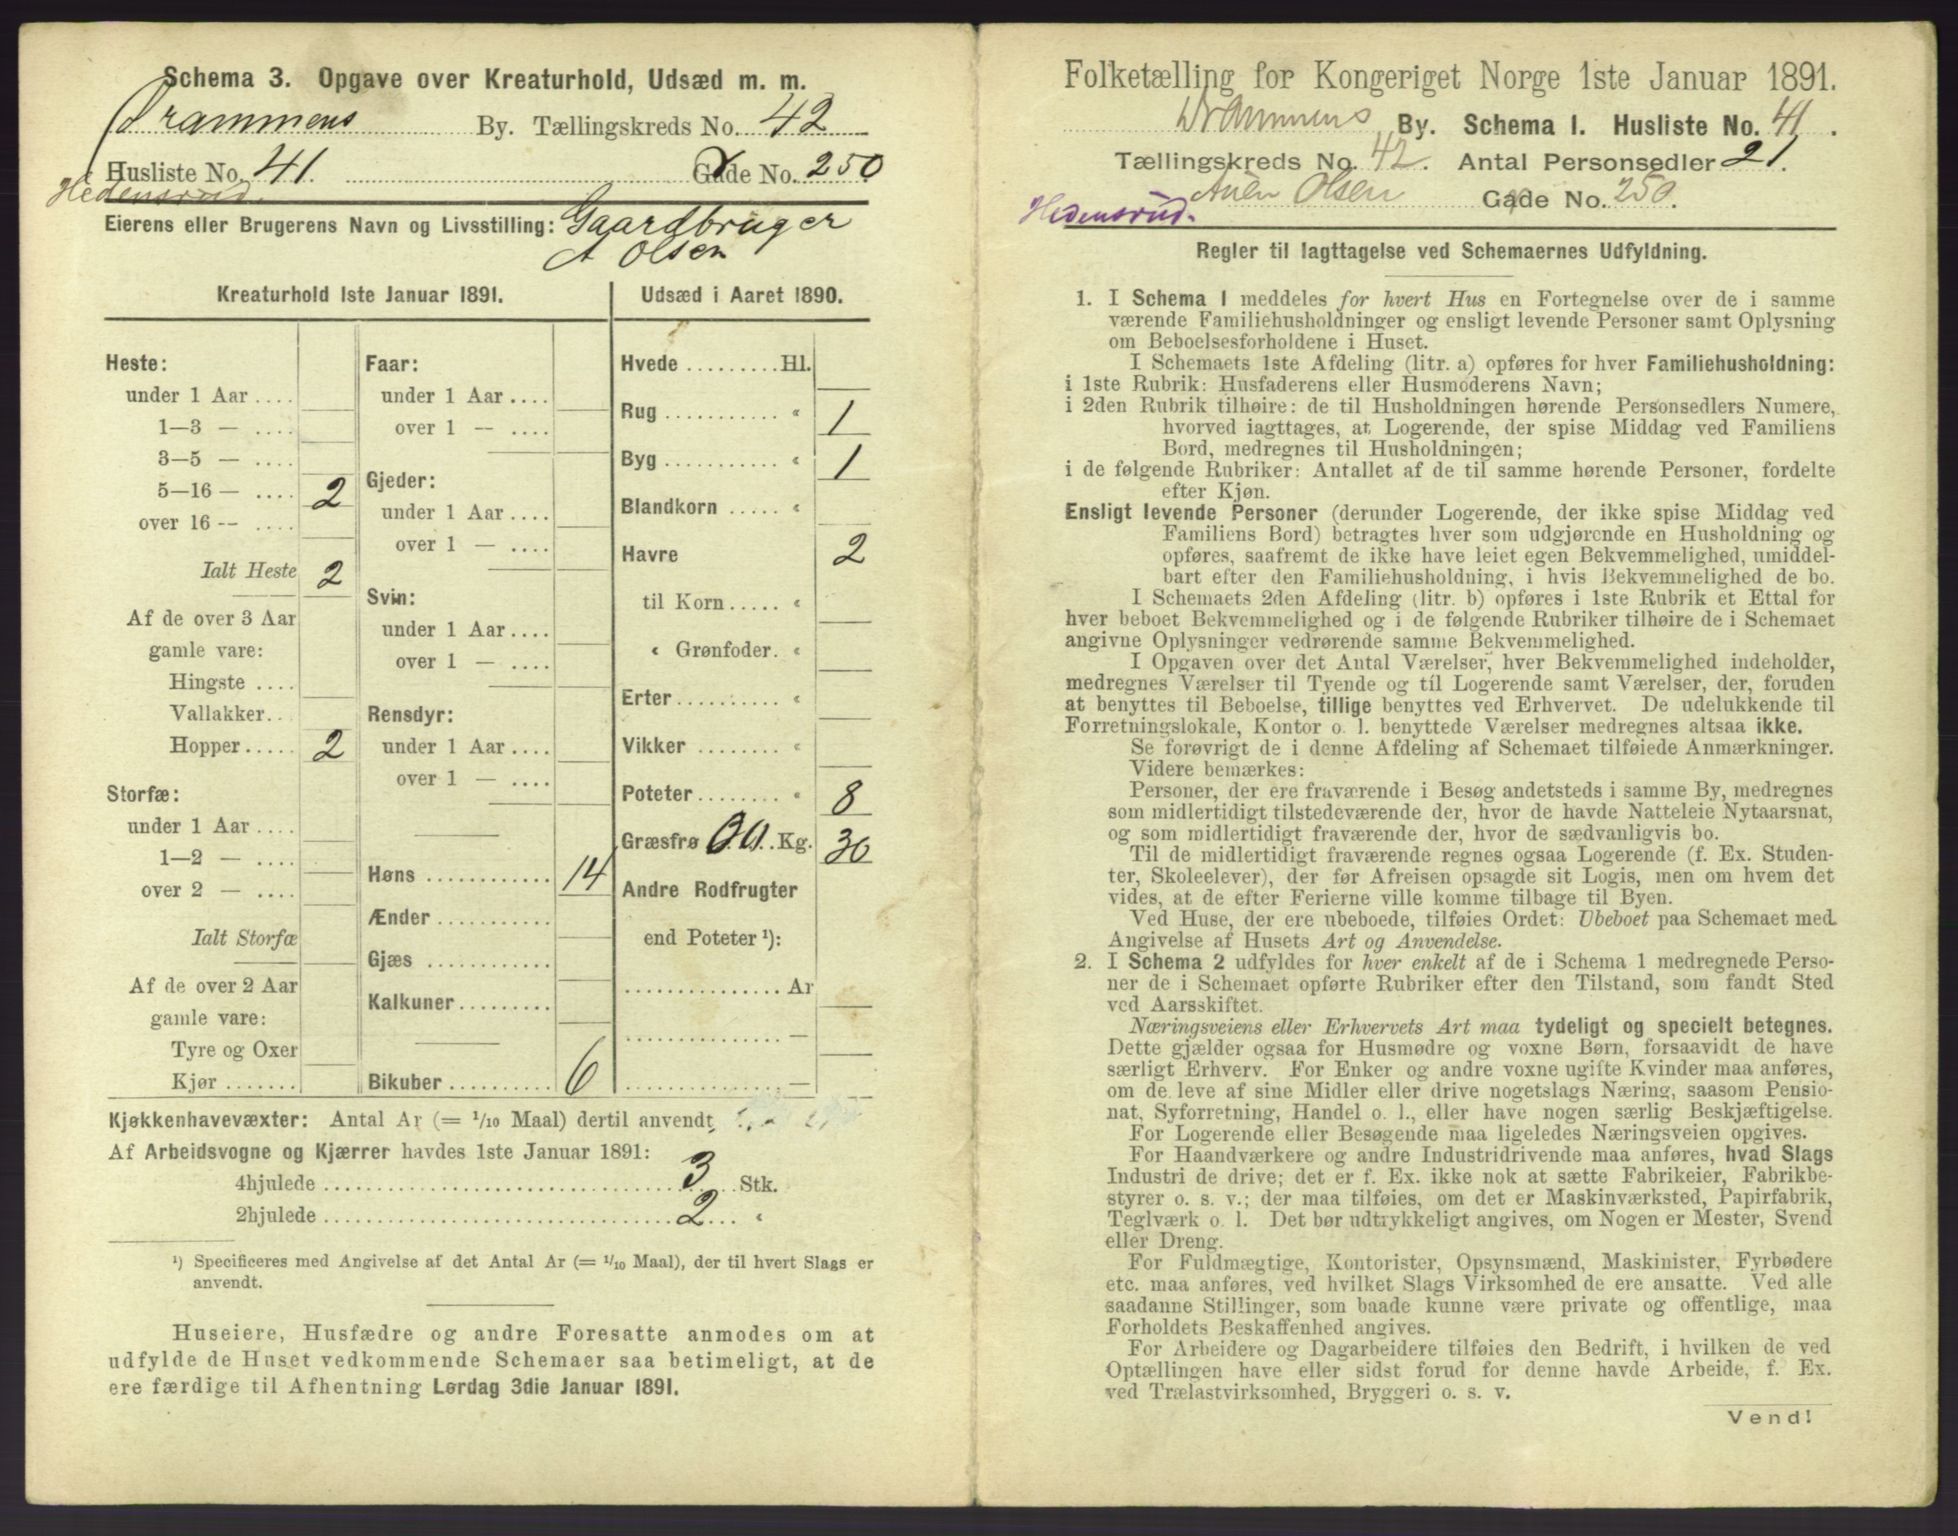 Schema 3. Opgave over Kreaturhold, Udsæd m. m.
Drammens By. Tællingskreds No. 42
Husliste No. 41. Gade No. 250
Hedensrud.
Eierens eller Brugerens Navn og Livsstilling: Gaardbruger
A Olsen
Kreaturhold 1ste Januar 1891.
Heste:
under 1 Aar ....
1—3 — ....
3—5 — ....
5—16 — .... 2
over 16 -- ....
Ialt Heste 2
Af de over 3 Aar
gamle vare:
Hingste ....
Vallakker..
Hopper ..... 2
Storfæ:
under 1 Aar ....
1—2 — ....
over 2 — ....
Ialt Storfæ
Af de over 2 Aar
gamle vare:
Tyre og Oxer
Kjør .......
Faar:
under 1 Aar ....
over 1 — ....
Gjeder:
under 1 Aar ....
over 1 — ....
Svin:
under 1 Aar ....
over 1 — ....
Rensdyr:
under 1 Aar ....
over 1 — ....
Høns ............ 14
Ænder ............
Gjæs ............
Kalkuner .........
Bikuber .......... 6
Udsæd i Aaret 1890.
Hvede ......... Hl.
Rug ........... « 1
Byg ........... « 1
Blandkorn ..... «
Havre 2
til Korn ..... «
« Grønfoder. «
Erter .......... «
Vikker ........ «
Poteter ........ « 8
Græsfrø 30 .. Kg. 30
Andre Rodfrugter
end Poteter ¹):
............... Ar
............... —
............... —
Kjøkkenhavevæxter: Antal Ar (= 1/10 Maal) dertil anvendt
Af Arbeidsvogne og Kjærrer havdes 1ste Januar 1891:
4hjulede .............. 3 ... Stk.
2hjulede .............. 2 ... «
¹) Specificeres med Angivelse af det Antal Ar (= 1/10 Maal), der til hvert Slags er
anvendt.
Huseiere, Husfædre og andre Foresatte anmodes om at
udfylde de Huset vedkommende Schemaer saa betimeligt, at de
ere færdige til Afhentning Lørdag 3die Januar 1891.
Folketælling for Kongeriget Norge 1ste Januar 1891.
Drammens By. Schema I. Husliste No. 41.
Tællingskreds No. 42. Antal Personsedler 21.
Hedensrud. Olsen Gade No. 250.
Regler til Iagttagelse ved Schemaernes Udfyldning.
1. I Schema I meddeles for hvert Hus en Fortegnelse over de i samme
værende Familiehusholdninger og ensligt levende Personer samt Oplysning
om Beboelsesforholdene i Huset.
I Schemaets 1ste Afdeling (litr. a) opføres for hver Familiehusholdning:
i 1ste Rubrik: Husfaderens eller Husmoderens Navn;
i 2den Rubrik tilhøire: de til Husholdningen hørende Personsedlers Numere,
hvorved iagttages, at Logerende, der spise Middag ved Familiens
Bord, medregnes til Husholdningen;
i de følgende Rubriker: Antallet af de til samme hørende Personer, fordelte
efter Kjøn.
Ensligt levende Personer (derunder Logerende, der ikke spise Middag ved
Familiens Bord) betragtes hver som udgjørende en Husholdning og
opføres, saafremt de ikke have leiet egen Bekvemmelighed, umiddel-
bart efter den Familiehusholdning, i hvis Bekvemmelighed de bo.
I Schemaets 2den Afdeling (litr. b) opføres i 1ste Rubrik et Ettal for
hver beboet Bekvemmelighed og i de følgende Rubriker tilhøire de i Schemaet
angivne Oplysninger vedrørende samme Bekvemmelighed.
I Opgaven over det Antal Værelser, hver Bekvemmelighed indeholder,
medregnes Værelser til Tyende og til Logerende samt Værelser, der, foruden
at benyttes til Beboelse, tillige benyttes ved Erhvervet. De udelukkende til
Forretningslokale, Kontor o. l. benyttede Værelser medregnes altsaa ikke.
Se forøvrigt de i denne Afdeling af Schemaet tilføiede Anmærkninger.
Videre bemærkes:
Personer, der ere fraværende i Besøg andetsteds i samme By, medregnes
som midlertidigt tilstedeværende der, hvor de havde Natteleie Nytaarsnat,
og som midlertidigt fraværende der, hvor de sædvanligvis bo.
Til de midlertidigt fraværende regnes ogsaa Logerende (f. Ex. Studen-
ter, Skoleelever), der før Afreisen opsagde sit Logis, men om hvem det
vides, at de efter Ferierne ville komme tilbage til Byen.
Ved Huse, der ere ubeboede, tilføies Ordet: Ubeboet paa Schemaet med
Angivelse af Husets Art og Anvendelse.
2. I Schema 2 udfyldes for hver enkelt af de i Schema 1 medregnede Perso-
ner de i Schemaet opførte Rubriker efter den Tilstand, som fandt Sted
ved Aarsskiftet.
Næringsveiens eller Erhvervets Art maa tydeligt og specielt betegnes.
Dette gjælder ogsaa for Husmødre og voxne Børn, forsaavidt de have
særligt Erhverv. For Enker og andre voxne ugifte Kvinder maa anføres,
om de leve af sine Midler eller drive nogetslags Næring, saasom Pensio-
nat, Syforretning, Handel o. l., eller have nogen særlig Beskjæftigelse.
For Logerende eller Besøgende maa ligeledes Næringsveien opgives.
For Haandværkere og andre Industridrivende maa anføres, hvad Slags
Industri de drive; det er f. Ex. ikke nok at sætte Fabrikeier, Fabrikbe-
styrer o. s. v.; der maa tilføies, om det er Maskinværksted, Papirfabrik,
Teglværk o. l. Det bør udtrykkeligt angives, om Nogen er Mester, Svend
eller Dreng.
For Fuldmægtige, Kontorister, Opsynsmænd, Maskinister, Fyrbødere
etc. maa anføres, ved hvilket Slags Virksomhed de ere ansatte. Ved alle
saadanne Stillinger, som baade kunne være private og offentlige, maa
Forholdets Beskaffenhed angives.
For Arbeidere og Dagarbeidere tilføies den Bedrift, i hvilken de ved
Optællingen have eller sidst forud for denne havde Arbeide, f. Ex.
ved Trælastvirksomhed, Bryggeri o. s. v.
Vend!